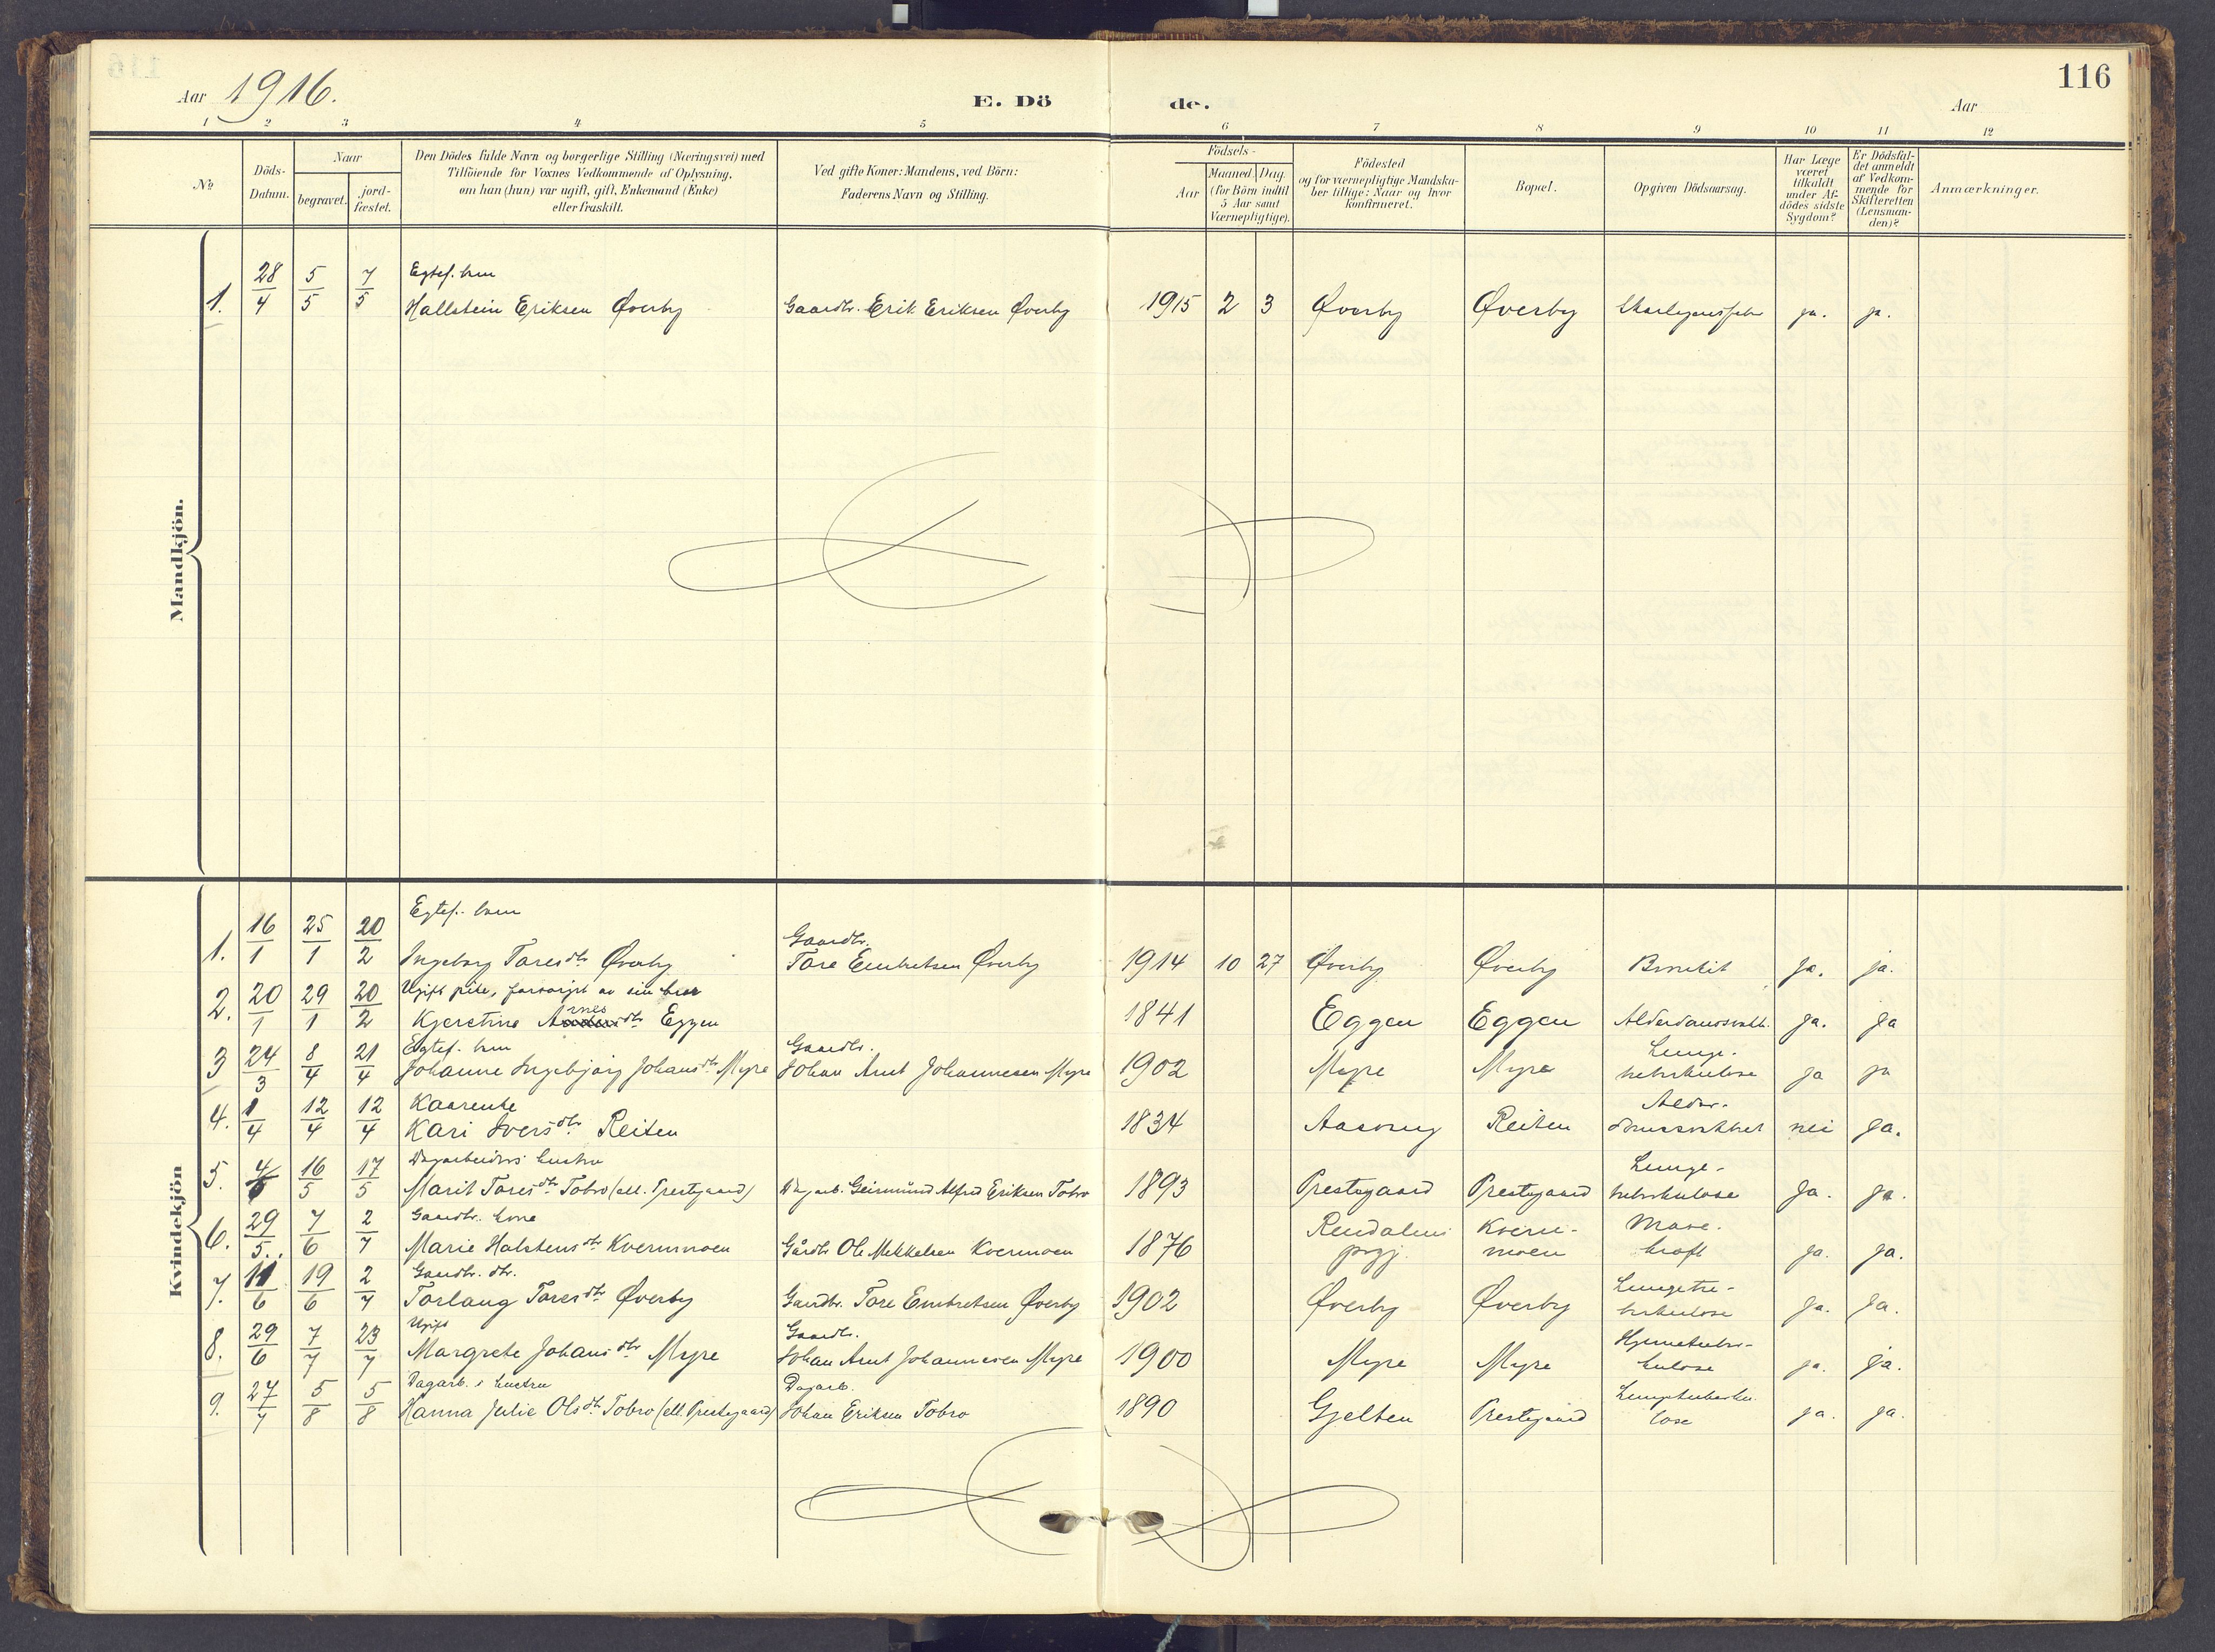 116
Aar 1916.
E. Dö de.
Aar
1 2 3 4 5 6 7 8 9 10 11 12
No
Döds-Datum.
Naar
begravet.
jord-fæstet.
Den Dödes fulde Navn og borgerlige Stilling (Næringsvei) med
Tilföiende for Voxnes Vedkommende af Oplysning,
om han (hun) var ugift, gift, Enkemand (Enke)
eller fraskilt.
Ved gifte Koner: Mandens, ved Börn:
Faderens Navn og Stilling.
Födsels-
Aar
Maaned. Dag.
(for Börn indtil
5 Aar samt
Værnepligtige).
Födested
og for værnepligtige Mandska-
ber tillige: Naar og hvor
konfirmeret.
Bopæl.
Opgiven Dödsaarsag.
Har Læge
været
tilkaldt
under Af-
dödes sidste
Sygdom?
Er Dödsfal-
det anmeldt
af Vedkom-
mende for
Skifteretten
(Lensman-
den)?
Anmærkninger.
Mandkjön.
1. 28/4 5/5 7/5 Egtef. barn
Hallstein Eriksen Øverby Gaardbr. Erik Eriksen Øverby 1915 2 3 Øverby Øverby ja. ja.
Kvindekjön
Egtef. barn
1. 16/1 25/1 20/2 Ingeborg Toresdtr Øverby Gaardbr. Tore Embretsen Øverby 1914 10 27 Øverby Øverby Bronkit ja. ja.
Ugift pike, forsørget av sin bror
2. 20/1 29/1 20/2 Kjerstine Arnesdtr Eggen 1841 Eggen Eggen ja. ja
Egtef. barn
3 24/3 8/4 21/4 Johanne Ingebjørg Johansdtr Myre Gaardbr. Johan Arnt Johannesen Myre 1902 Myre Myre Lunge-tuberkulose ja ja
4. 1/4 12/4 12/4 Kaarenke
Kari Iversdtr Reiten 1834 Reiten Alder-domssvakhet nei ja.
Dagarbeiders hustru
5. 4/5 16/5 17/5 Marit Toresdtr Tobro (ell. Prestgaard) Dagarb. Geirmund Alfred Eriksen Tobro 1893 Prestegaard Prestegaard Lunge-tuberkulose ja. ja.
Gaardbr. kone
6. 29/5. 7/6 2/7 Marie Halstensdtr Kvernmoen Gårdbr Ole Mikkelsen Kvernmoen 1876 Rendalens prgj. Kvern-moen Mave-kræft ja. ja.
Gaardbr. dtr.
7. 11/6 19/6 2/7 Torlaug Toresdtr Øverby Gaardbr. Tore Embretsen Øverby 1902 Øverby Øverby Lungetu-berkulose ja. ja.
Ugift
8. 29/6 7/7 23/7 Margrete Johansdtr Myre Gaardbr. Johan Arnt Johannesen Myre 1900 Myre Myre Hjernetuber-kulose ja. ja.
Dagarb.s hustru
9. 27/7 5/8 5/8 Hanna Julie Olsdtr Tobro (ell. Prestegaard) Dagarb. Johan Eriksen Tobro 1890 Gjelten Prestegaard Lungetuberku-lose ja. ja.